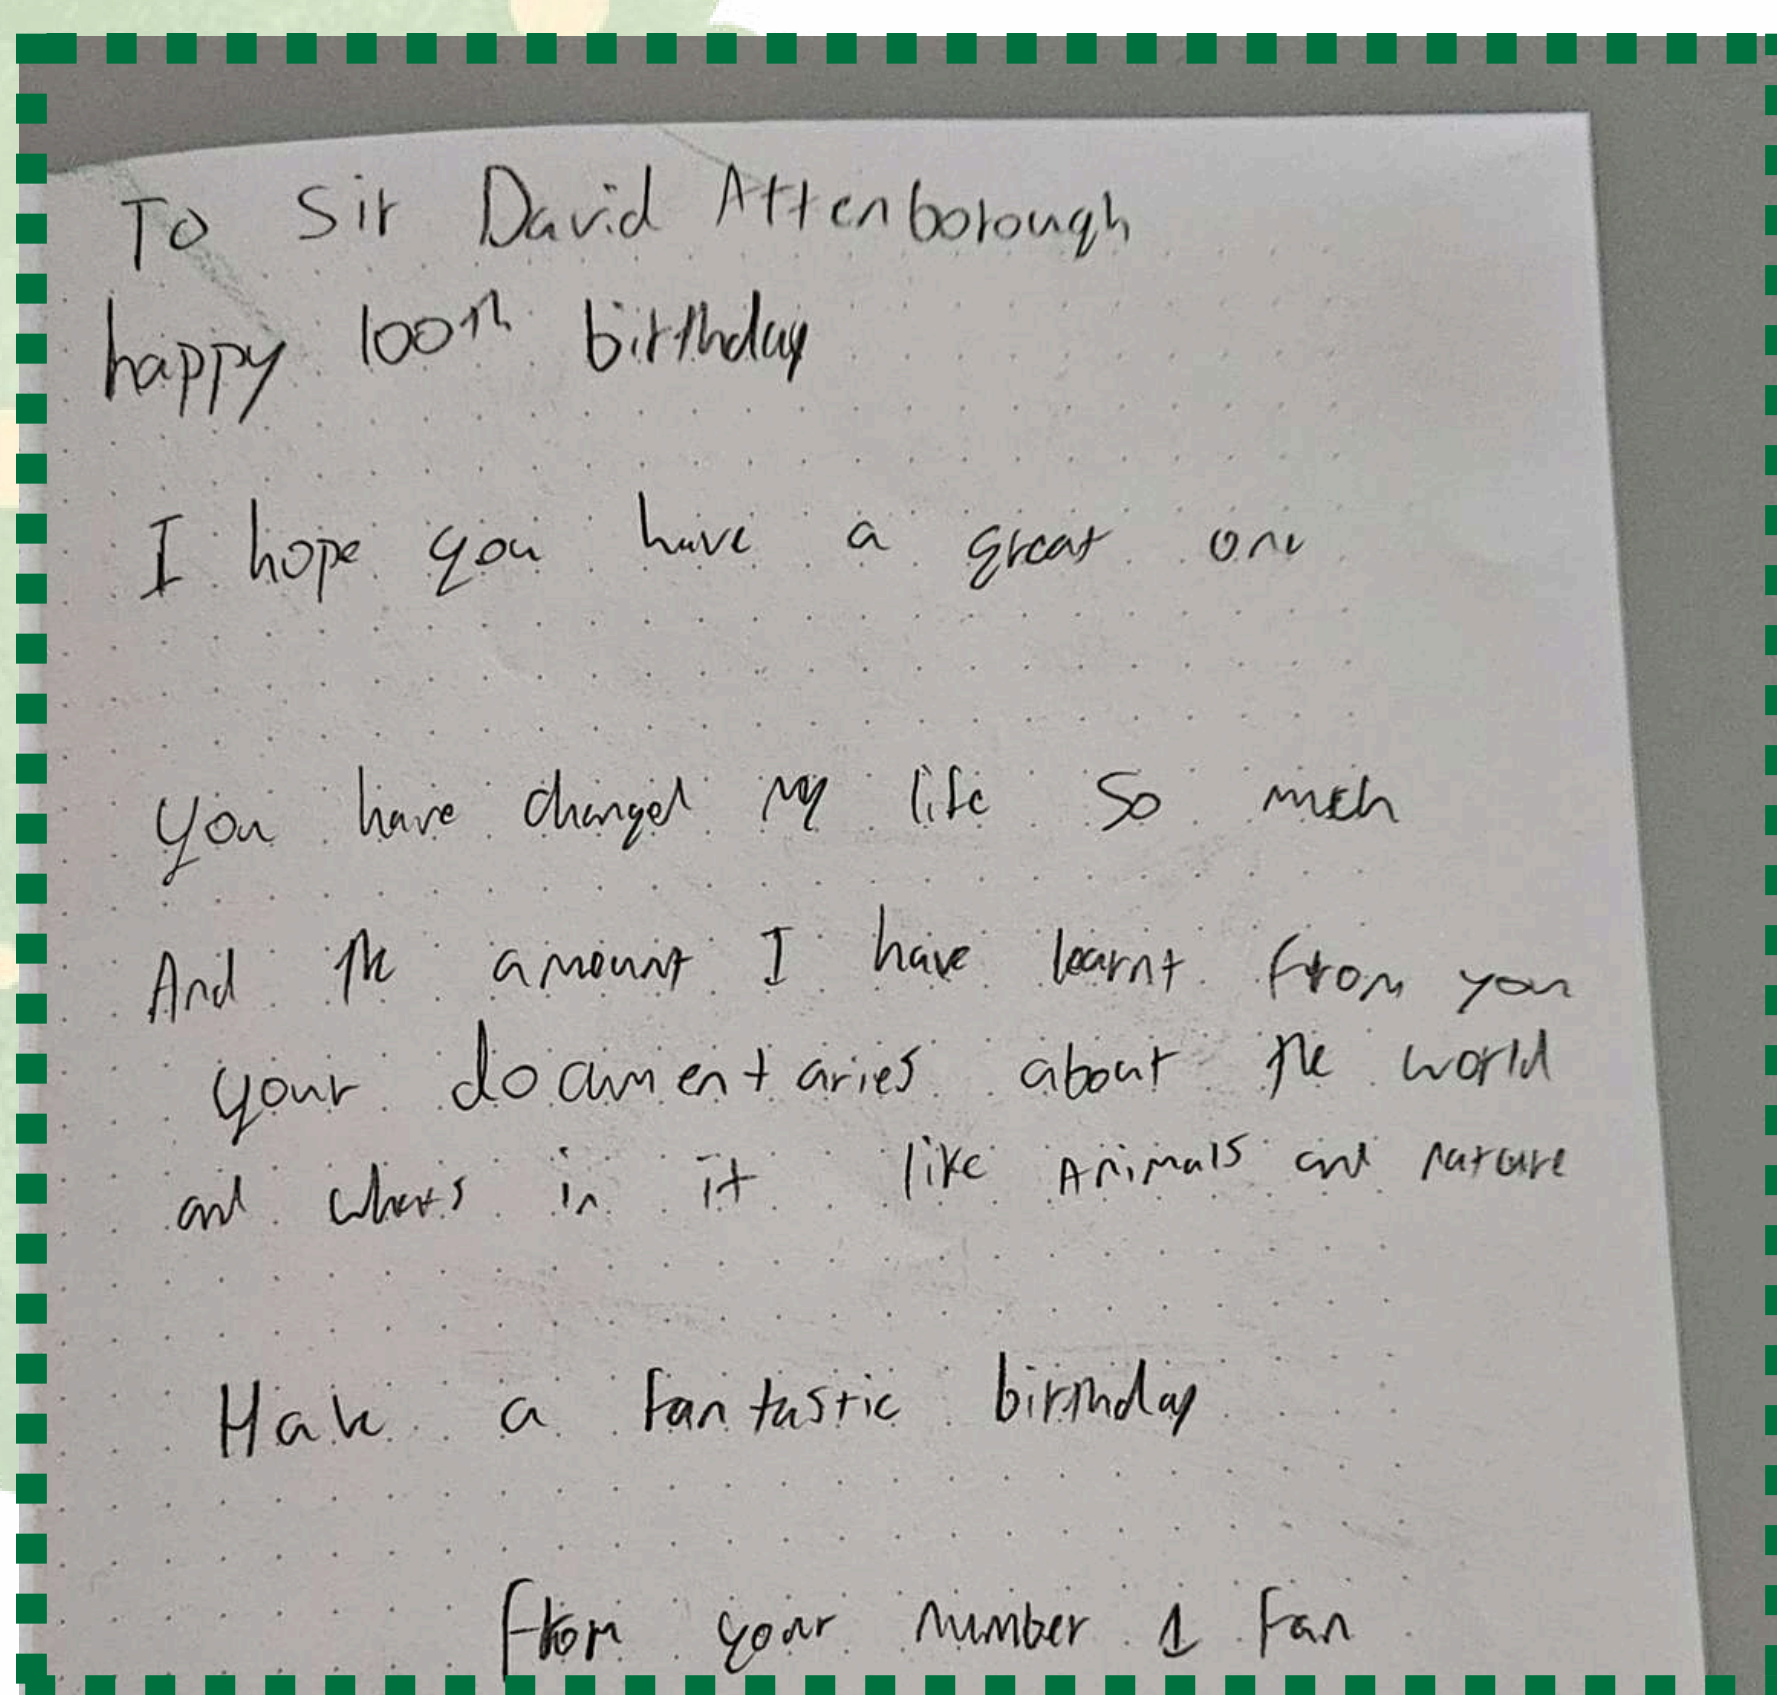 To Sir David Attenborough
happy 100th birthday
I hope you have a great one
You have changed my life so much
And the amount I have learnt from you
your documentaries about the world
and whats in it like Animals and nature
Have a fantastic birthday
From your number 1 fan